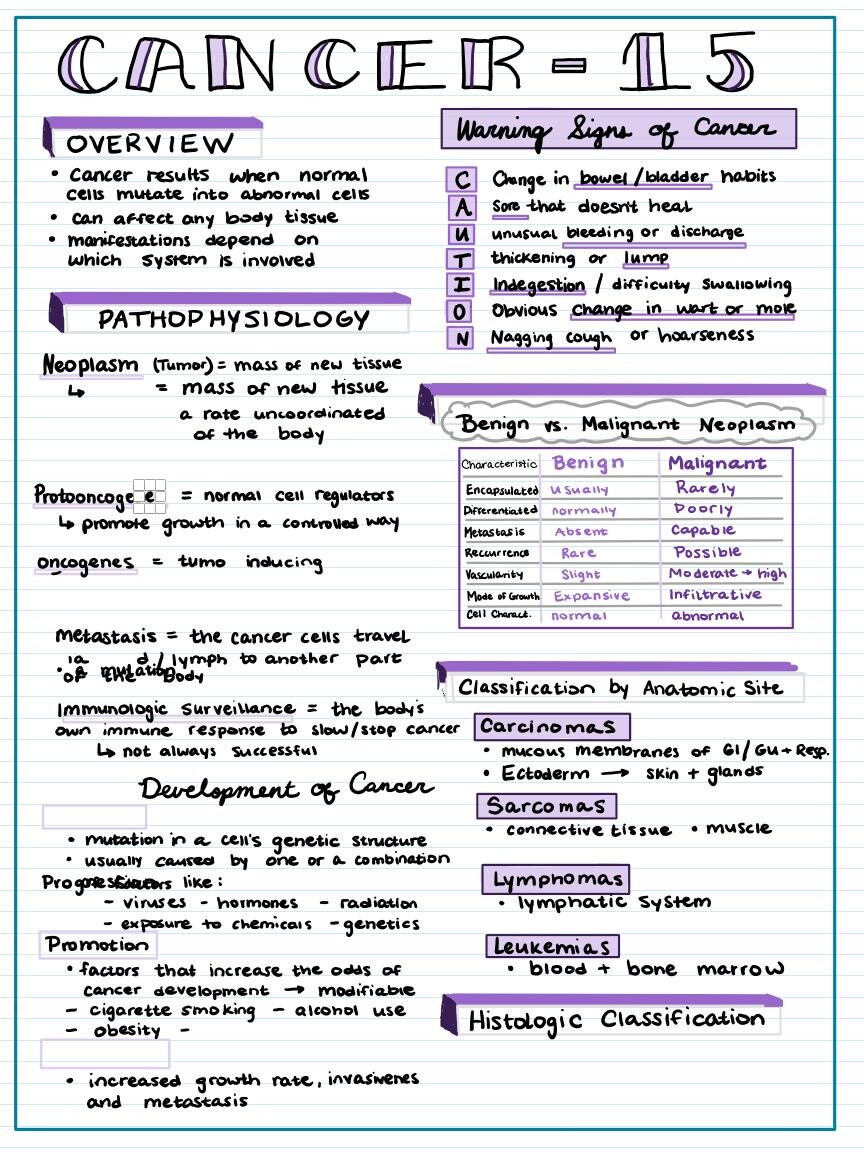 CANCER - 15
OVERVIEW
• Cancer results when normal
cells mutate into abnormal cells
• can affect any body tissue
• manifestations depend on
which system is involved
PATHOPHYSIOLOGY
Neoplasm (Tumor) = mass of new tissue
↳ = mass of new tissue
a rate uncoordinated
of the body
Protooncoge e = normal cell regulators
↳ promote growth in a controlled way
oncogenes = tumo inducing
metastasis = the cancer cells travel
d / lymph to another part
• a mutation
of the body
Immunologic surveillance = the body's
own immune response to slow/stop cancer
↳ not always successful
Development of Cancer
• mutation in a cell's genetic structure
• usually caused by one or a combination
Progression
factors like:
- viruses - hormones - radiation
- exposure to chemicals - genetics
Promotion
• factors that increase the odds of
cancer development → modifiable
- cigarette smoking - alcohol use
- obesity -
• increased growth rate, invasivenes
and metastasis
Warning Signs of Cancer
C Change in bowel / bladder habits
A Sore that doesn't heal
U unusual bleeding or discharge
T thickening or lump
I Indegestion / difficulty swallowing
O Obvious change in wart or mole
N Nagging cough or hoarseness
Benign vs. Malignant Neoplasm
Characteristic Benign Malignant
Encapsulated usually Rarely
Differentiated normally Poorly
Metastasis Absent Capable
Reccurrence Rare Possible
Vascularity Slight Moderate → high
Mode of Growth Expansive Infiltrative
Cell Charact. normal abnormal
Classification by Anatomic Site
Carcinomas
• mucous membranes of GI/GU + Resp.
• Ectoderm → skin + glands
Sarcomas
• connective tissue • muscle
Lymphomas
• lymphatic system
Leukemias
• blood + bone marrow
Histologic Classification